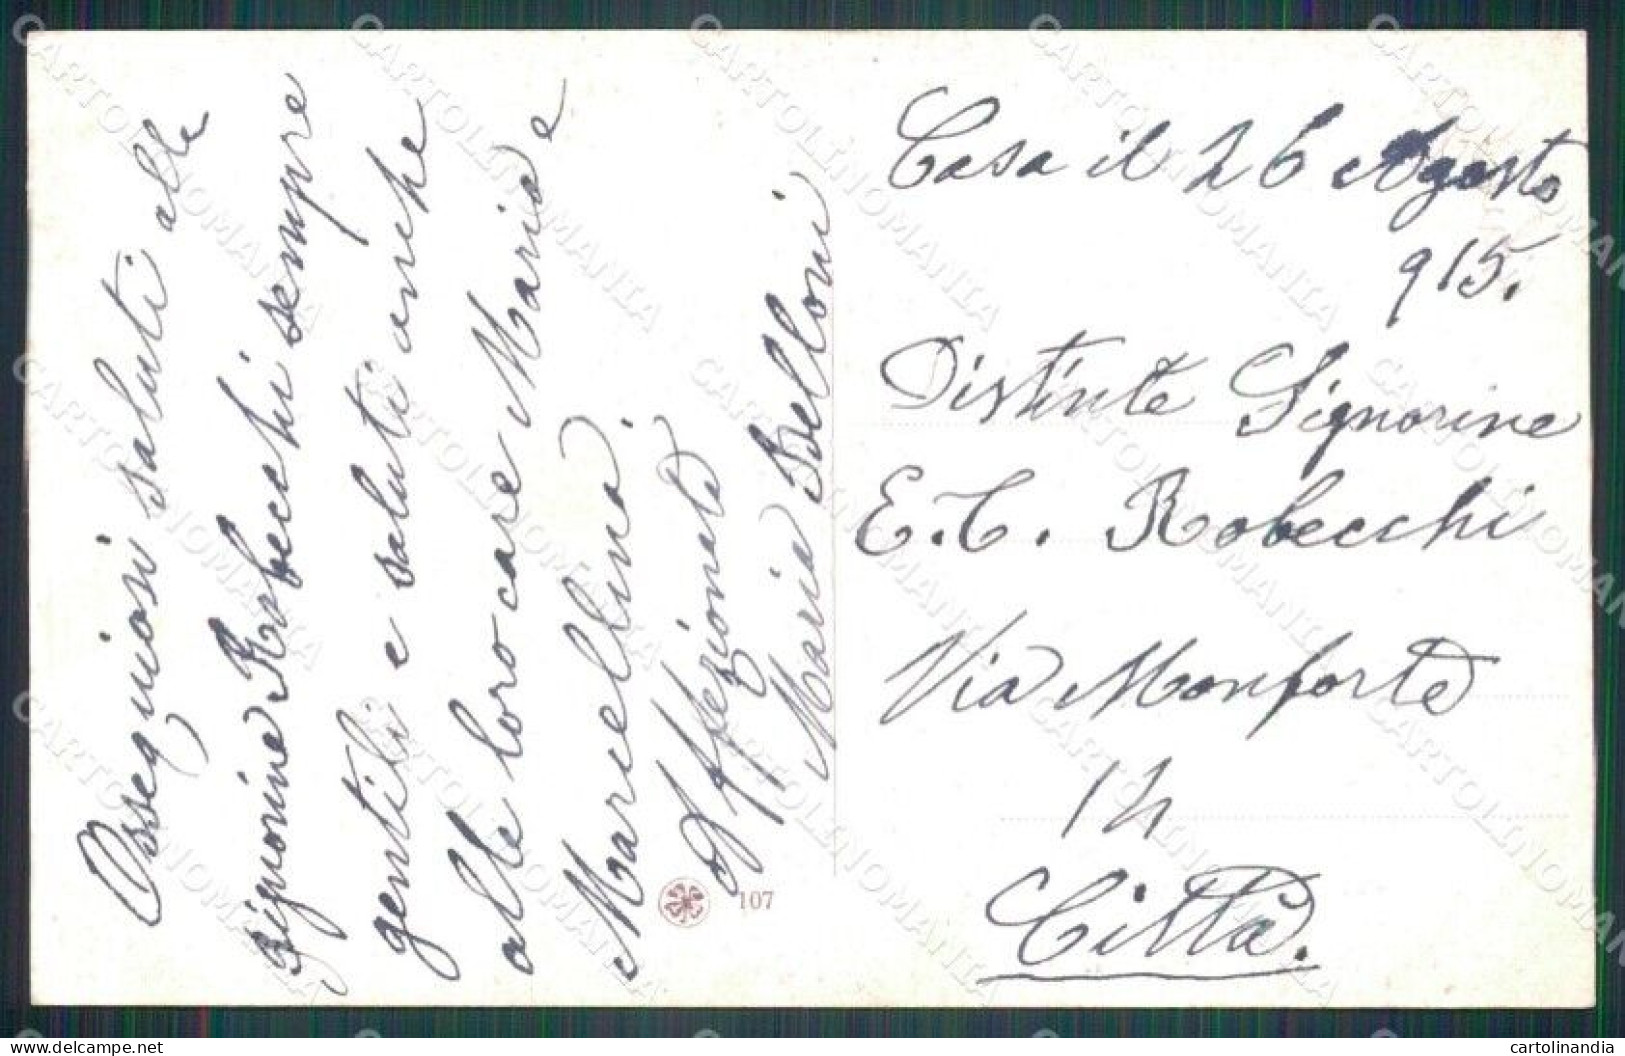 Ossequiosi saluti alle
Signorine Robecchi sempre
gentili e saluti anche
alle loro care Maria e
Marcellina.
Affezionata
Maria Belloni
107
Casa il 26 Agosto
915.
Distinte Signorine
E. C. Robecchi
Via Monforte
14
Città.
CARTOLINOMANIA
delcampe.net
cartolinandia